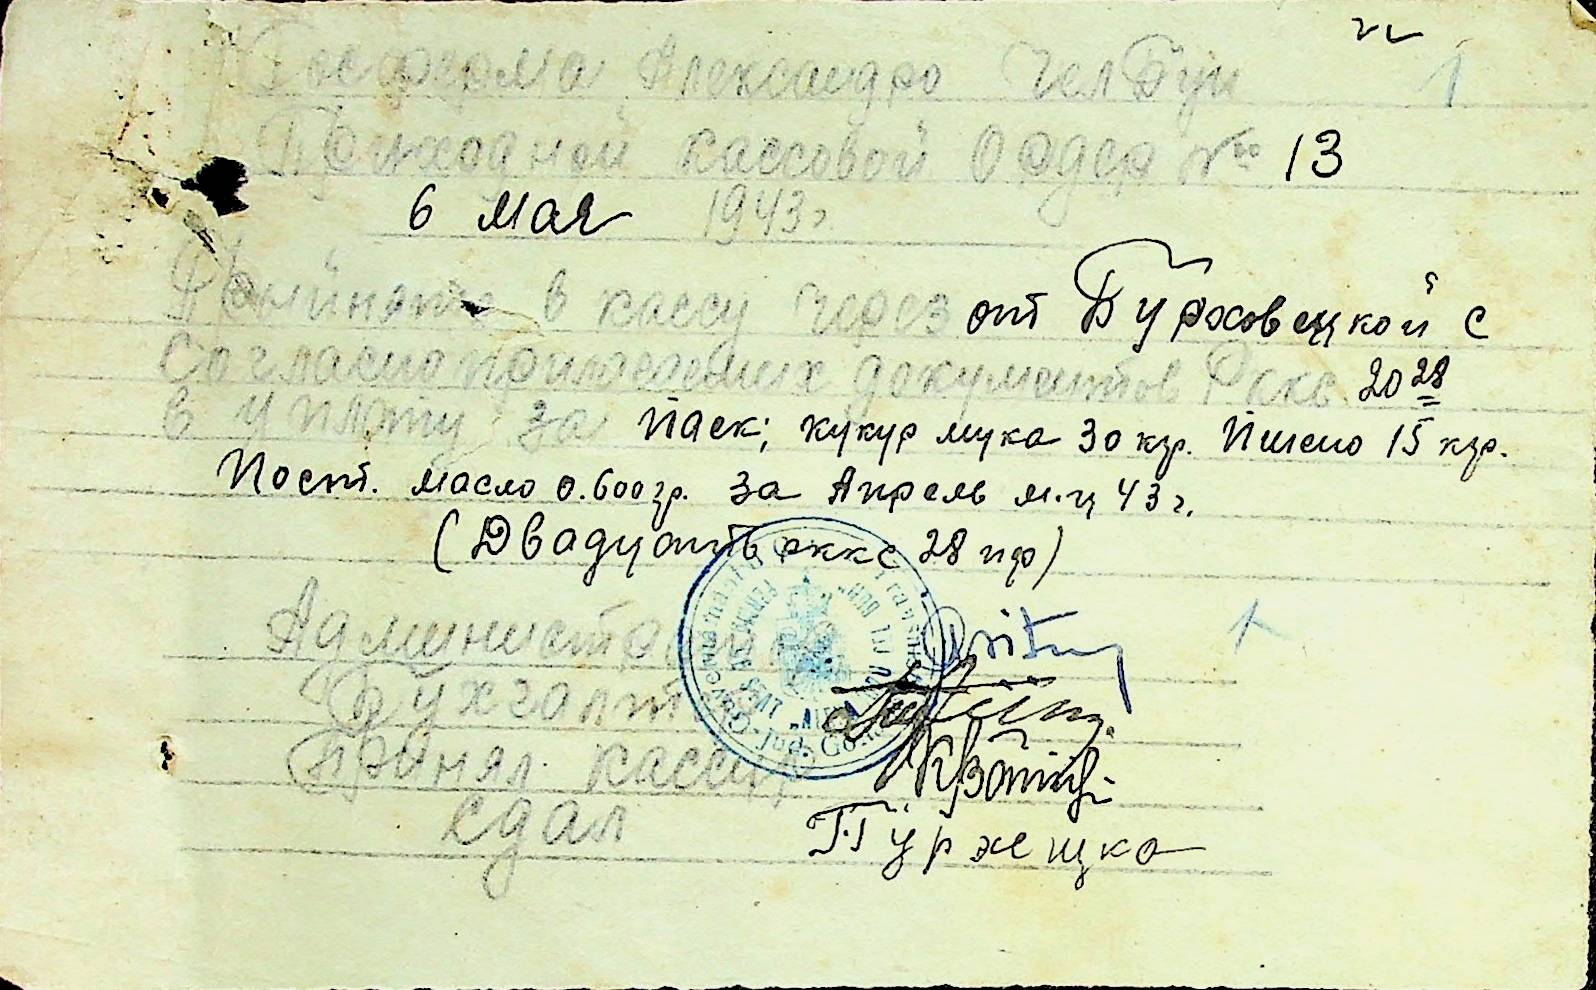 Госферма Александро Челбун
Приходной кассовой Ордер № 13
6 мая 1943 г.
Прыйнято в кассу через от Буржовецкой С
Согласно приложених документов Рккс 20 28
в уплату за Паек; кукур мука 30 кгр. Пшено 15 кгр.
Пост. масло 0.600 гр. за Апрель м-ц 43 г.
(Двадцать рккс 28 пф)
Администра
Бухгалт
Принял кассир
Сдал